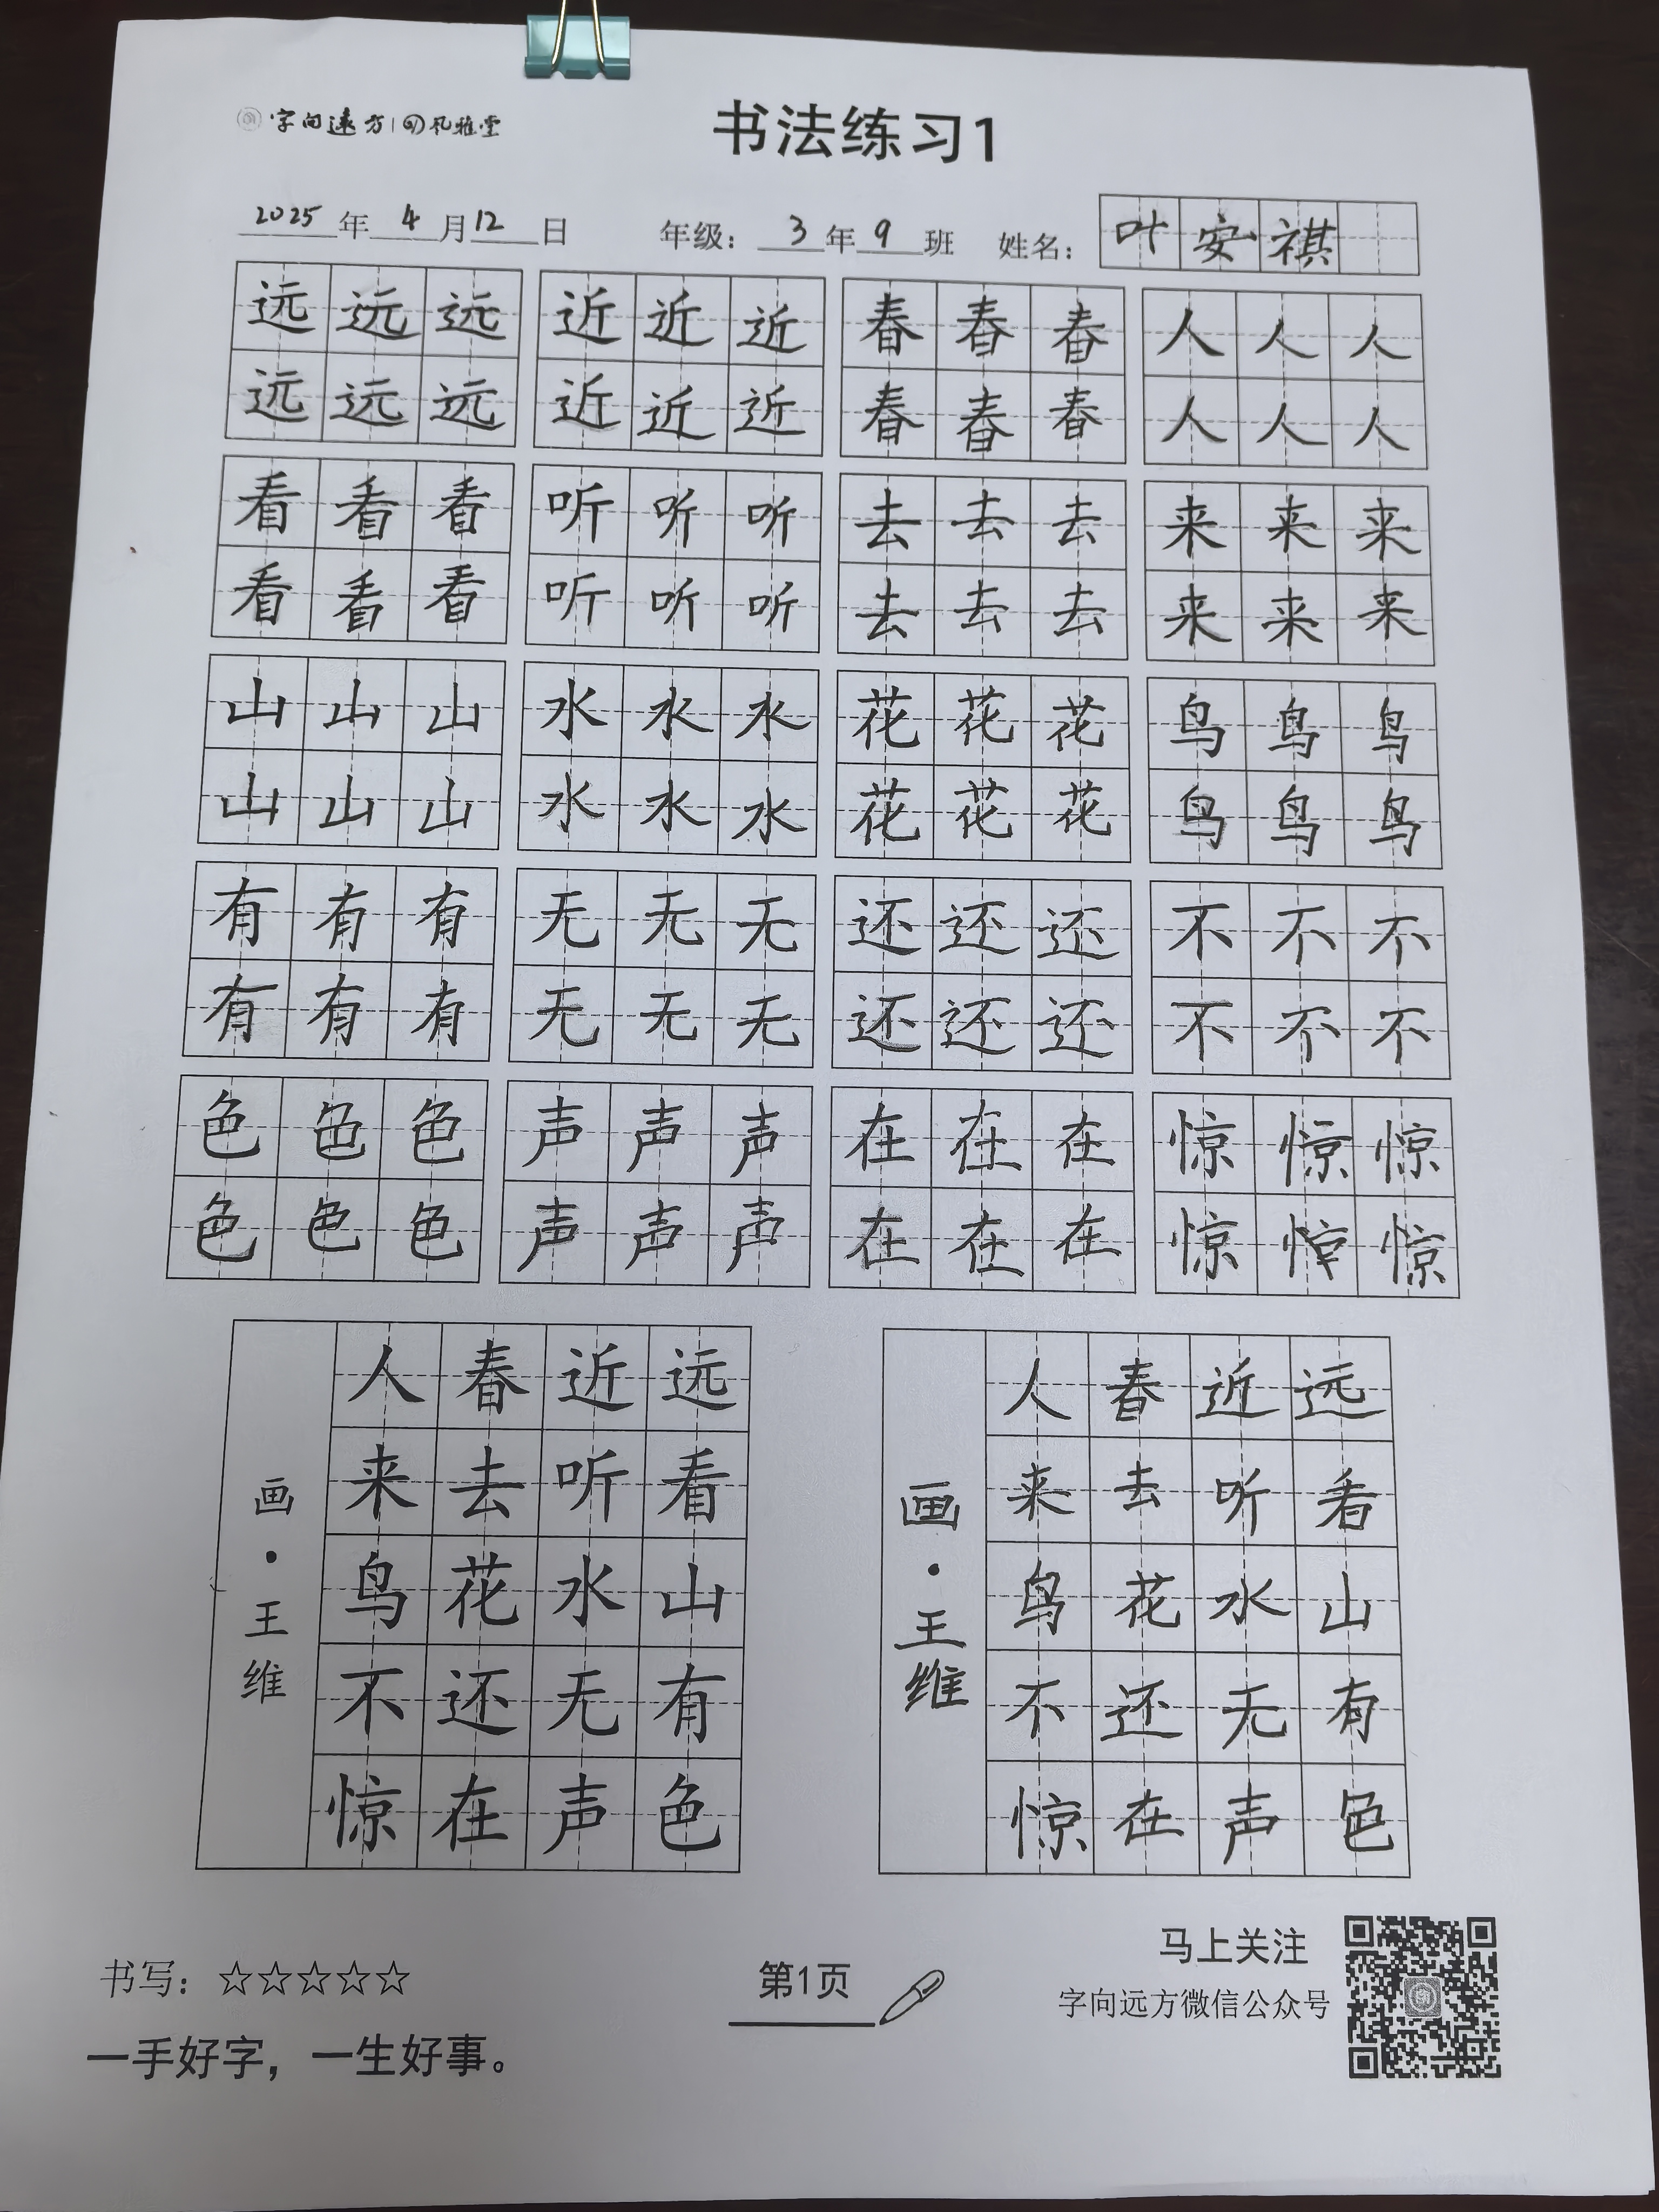 字向远方 风雅堂
书法练习1
2025年4月12日 年级：3年9班 姓名：叶安祺
远远远 近近近 春春春 人人人
远远远 近近近 春春春 人人人
看看看 听听听 去去去 来来来
看看看 听听听 去去去 来来来
山山山 水水水 花花花 鸟鸟鸟
山山山 水水水 花花花 鸟鸟鸟
有有有 无无无 还还还 不不不
有有有 无无无 还还还 不不不
色色色 声声声 在在在 惊惊惊
色色色 声声声 在在在 惊惊惊
远看山有色
近听水无声
春去花还在
人来鸟不惊
画·王维
远看山有色
近听水无声
春去花还在
人来鸟不惊
画·王维
书写：☆☆☆☆☆
一手好字，一生好事。
第1页
马上关注
字向远方微信公众号